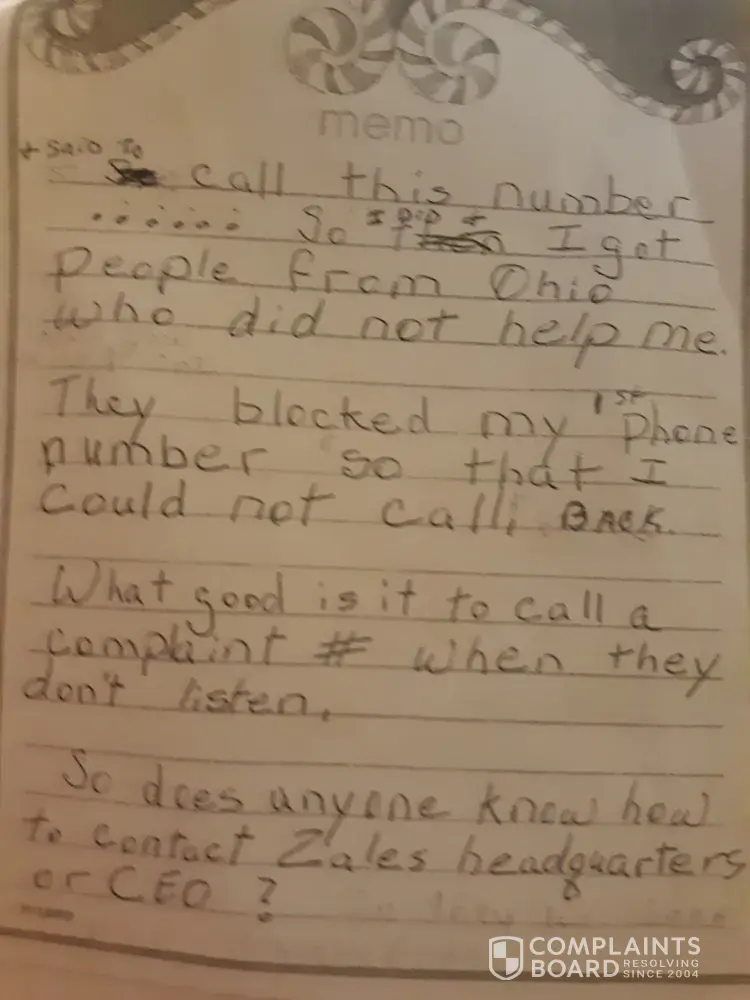 memo
+ said to
call this number
...... So I did + I got
people from Ohio
who did not help me.
They blocked my 1st phone
number so that I
could not call, BACK.
What good is it to call a
complaint # when they
don't listen,
So does anyone know how
to contact Zales headquarters
or CEO ?
COMPLAINTS
BOARD RESOLVING
SINCE 2004